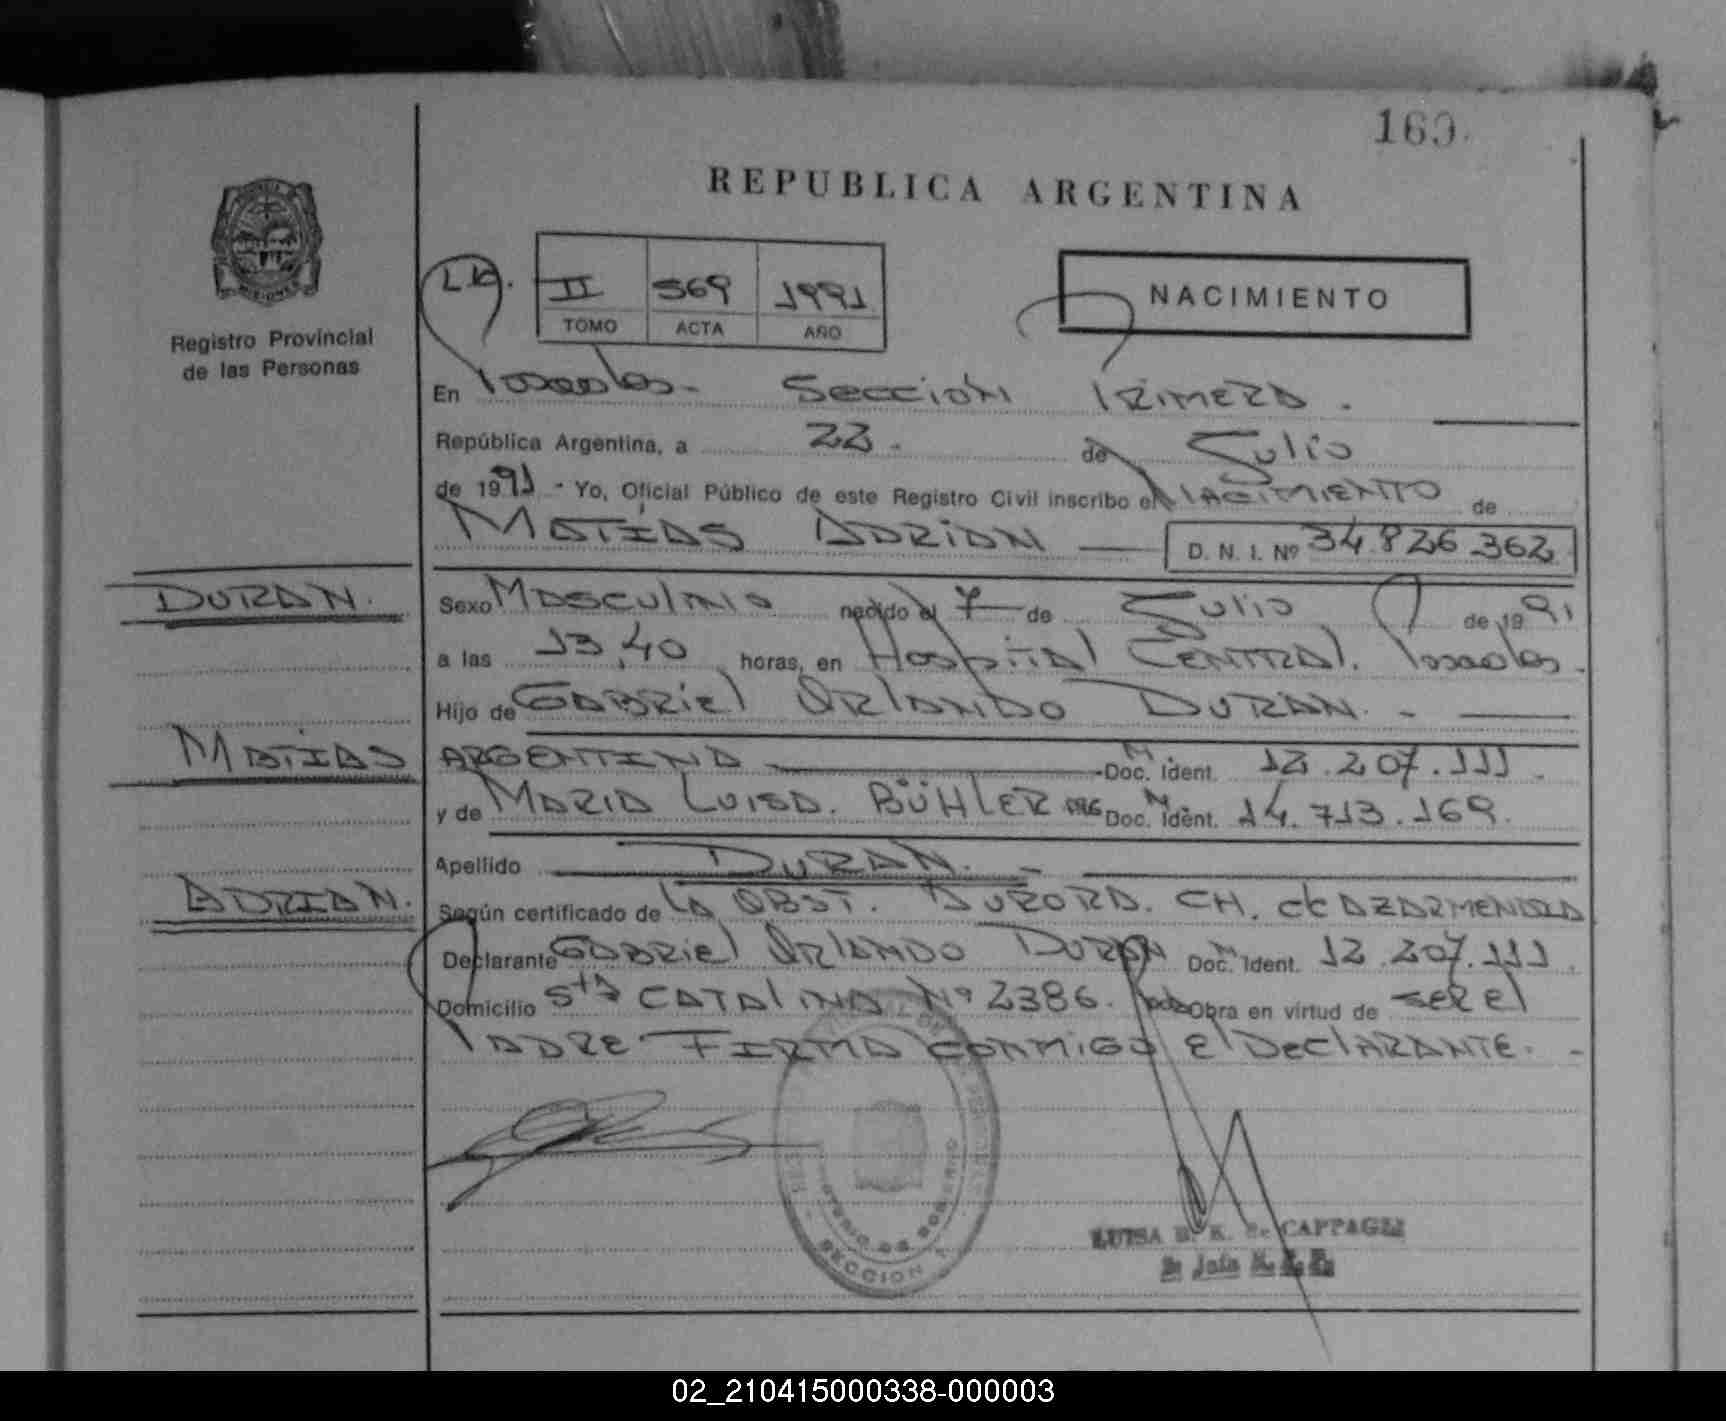 160.
REPUBLICA ARGENTINA
MISIONES
Registro Provincial
de las Personas
II 569 1991
TOMO ACTA AÑO
NACIMIENTO
En Posadas - Sección Primera.
República Argentina, a 22. de Julio
de 1991 - Yo, Oficial Público de este Registro Civil inscribo el NACIMIENTO de
MATÍAS ADRIAN D. N. I. Nº 34.826.362
DURAN.
Sexo Masculino nacido el 7 de Julio de 1991
a las 13,40 horas, en Hospital Central. Posadas.
Hijo de GABRIEL ORLANDO DURAN. -
MATÍAS
ARGENTINA Doc. M. Ident. 12.207.111.
y de MARIA LUISA. BÜHLER ARG Doc. M. Ident. 14.713.169.
Apellido DURAN. -
ADRIAN.
Según certificado de LA OBST. AURORA. CH. de AZARMENDIA
Declarante GABRIEL ORLANDO DURAN Doc. M. Ident. 12.207.111.
Domicilio Sta CATALINA Nº 2386. Pdas Obra en virtud de ser el
PADRE FIRMA CONMIGO El DECLARANTE. -
SECCION 1
LUISA K. de CAPPAGLI
02_210415000338-000003